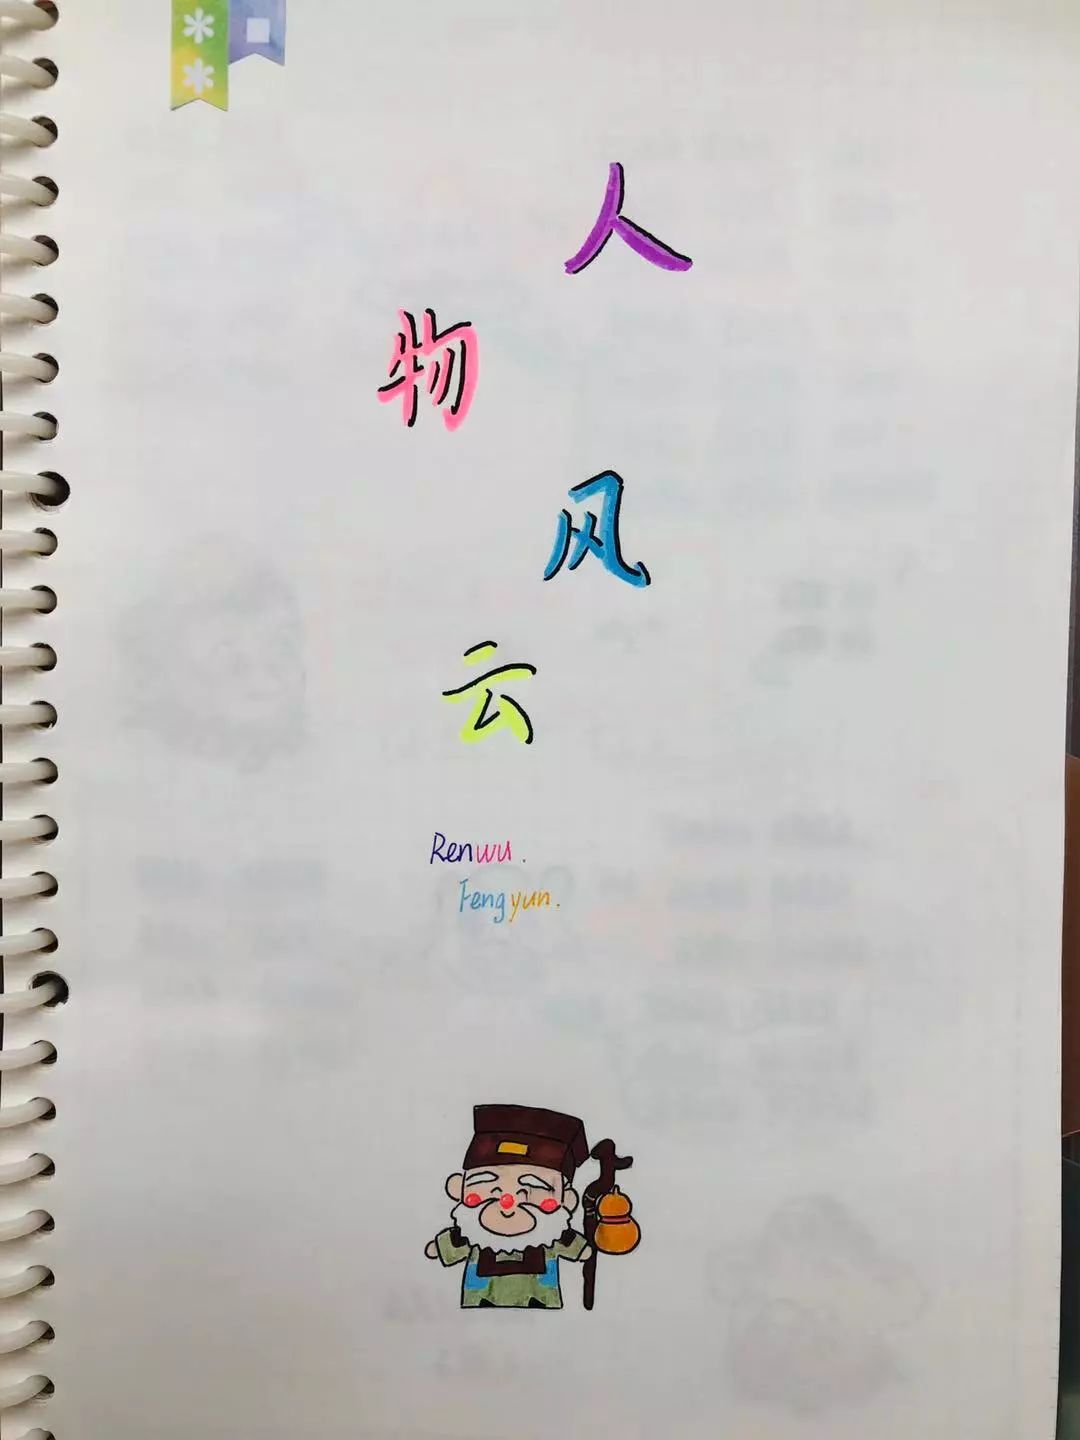 人
物
风
云
Renwu.
Fengyun.